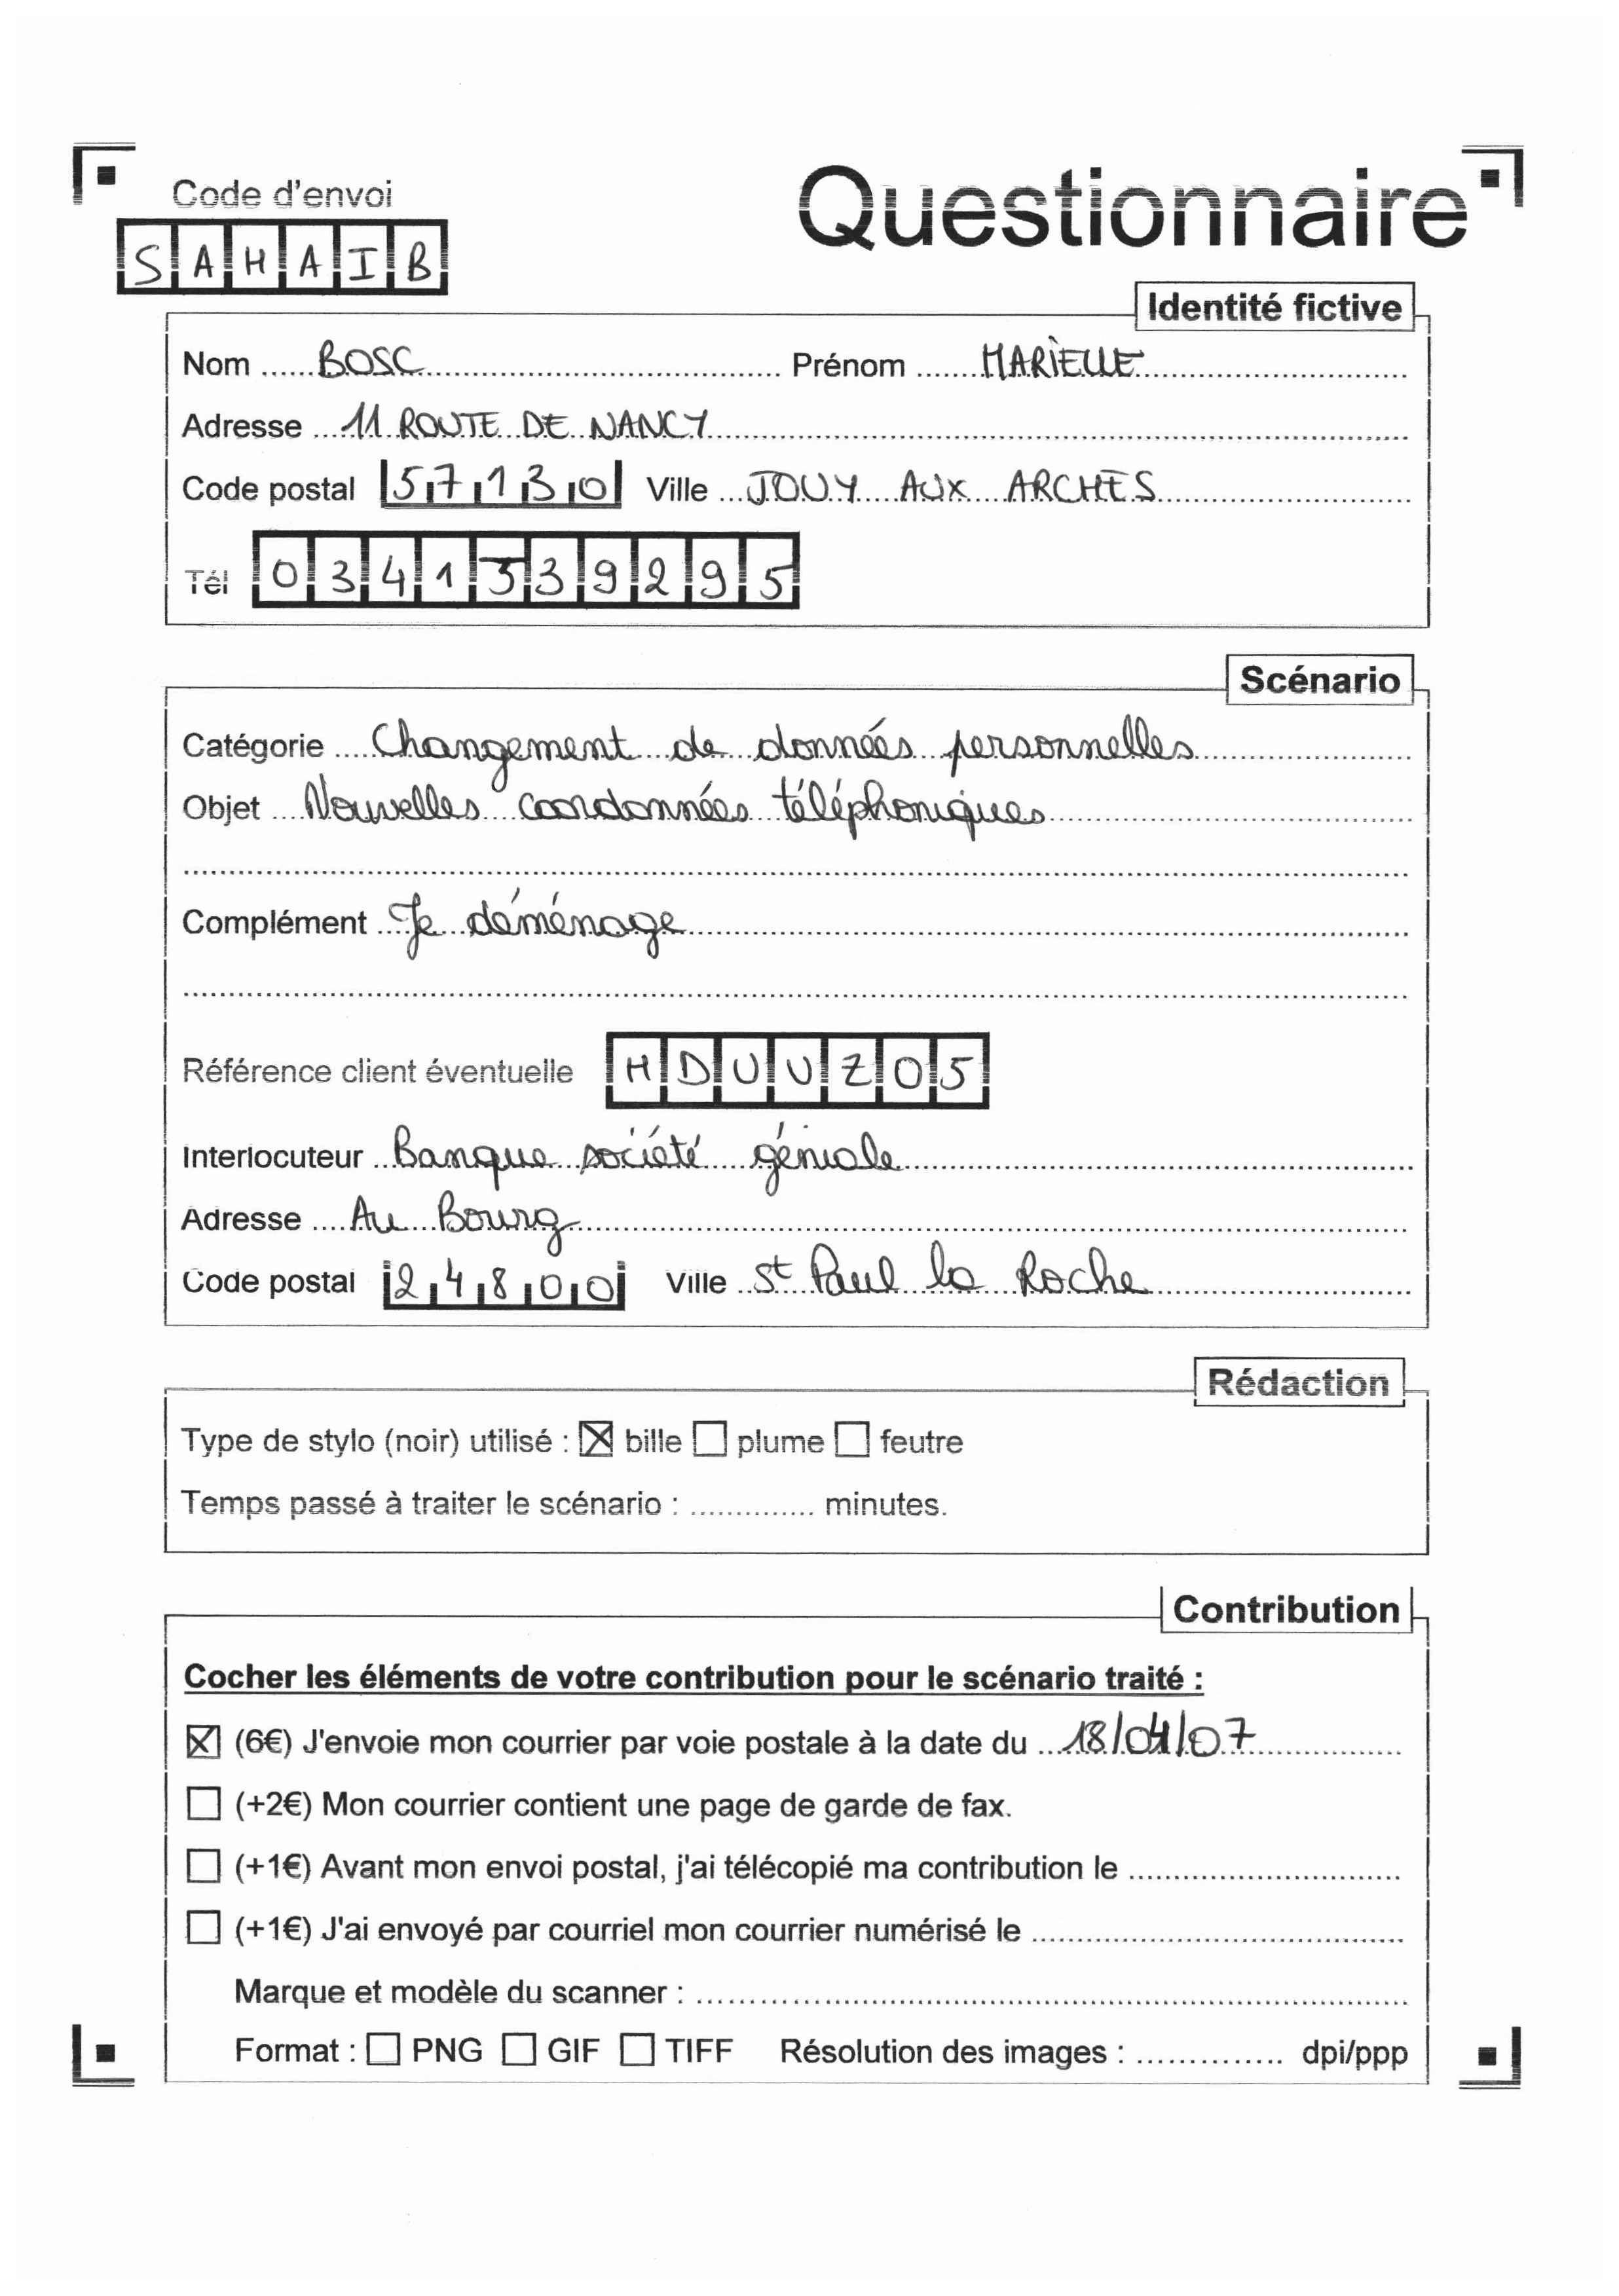 Code d'envoi
Questionnaire
SAHAIB
Identité fictive
Nom BOSC Prénom MARIELLE
Adresse 11 ROUTE DE NANCY
Code postal 57130 Ville JOUY AUX ARCHES
Tél 0341539295
Scénario
Catégorie Changement de données personnelles
Objet Nouvelles coordonnées téléphoniques
Complément Je déménage
Référence client éventuelle HDUUZ05
Interlocuteur Banque société géniale
Adresse Au Bourg
Code postal 24800 Ville St Paul la Roche
Rédaction
Type de stylo (noir) utilisé : ☒ bille ☐ plume ☐ feutre
Temps passé à traiter le scénario : .............. minutes.
Contribution
Cocher les éléments de votre contribution pour le scénario traité :
☒ (6€) J'envoie mon courrier par voie postale à la date du 18/04/07
☐ (+2€) Mon courrier contient une page de garde de fax.
☐ (+1€) Avant mon envoi postal, j'ai télécopié ma contribution le
☐ (+1€) J'ai envoyé par courriel mon courrier numérisé le
Marque et modèle du scanner :
Format : ☐ PNG ☐ GIF ☐ TIFF Résolution des images : .............. dpi/ppp